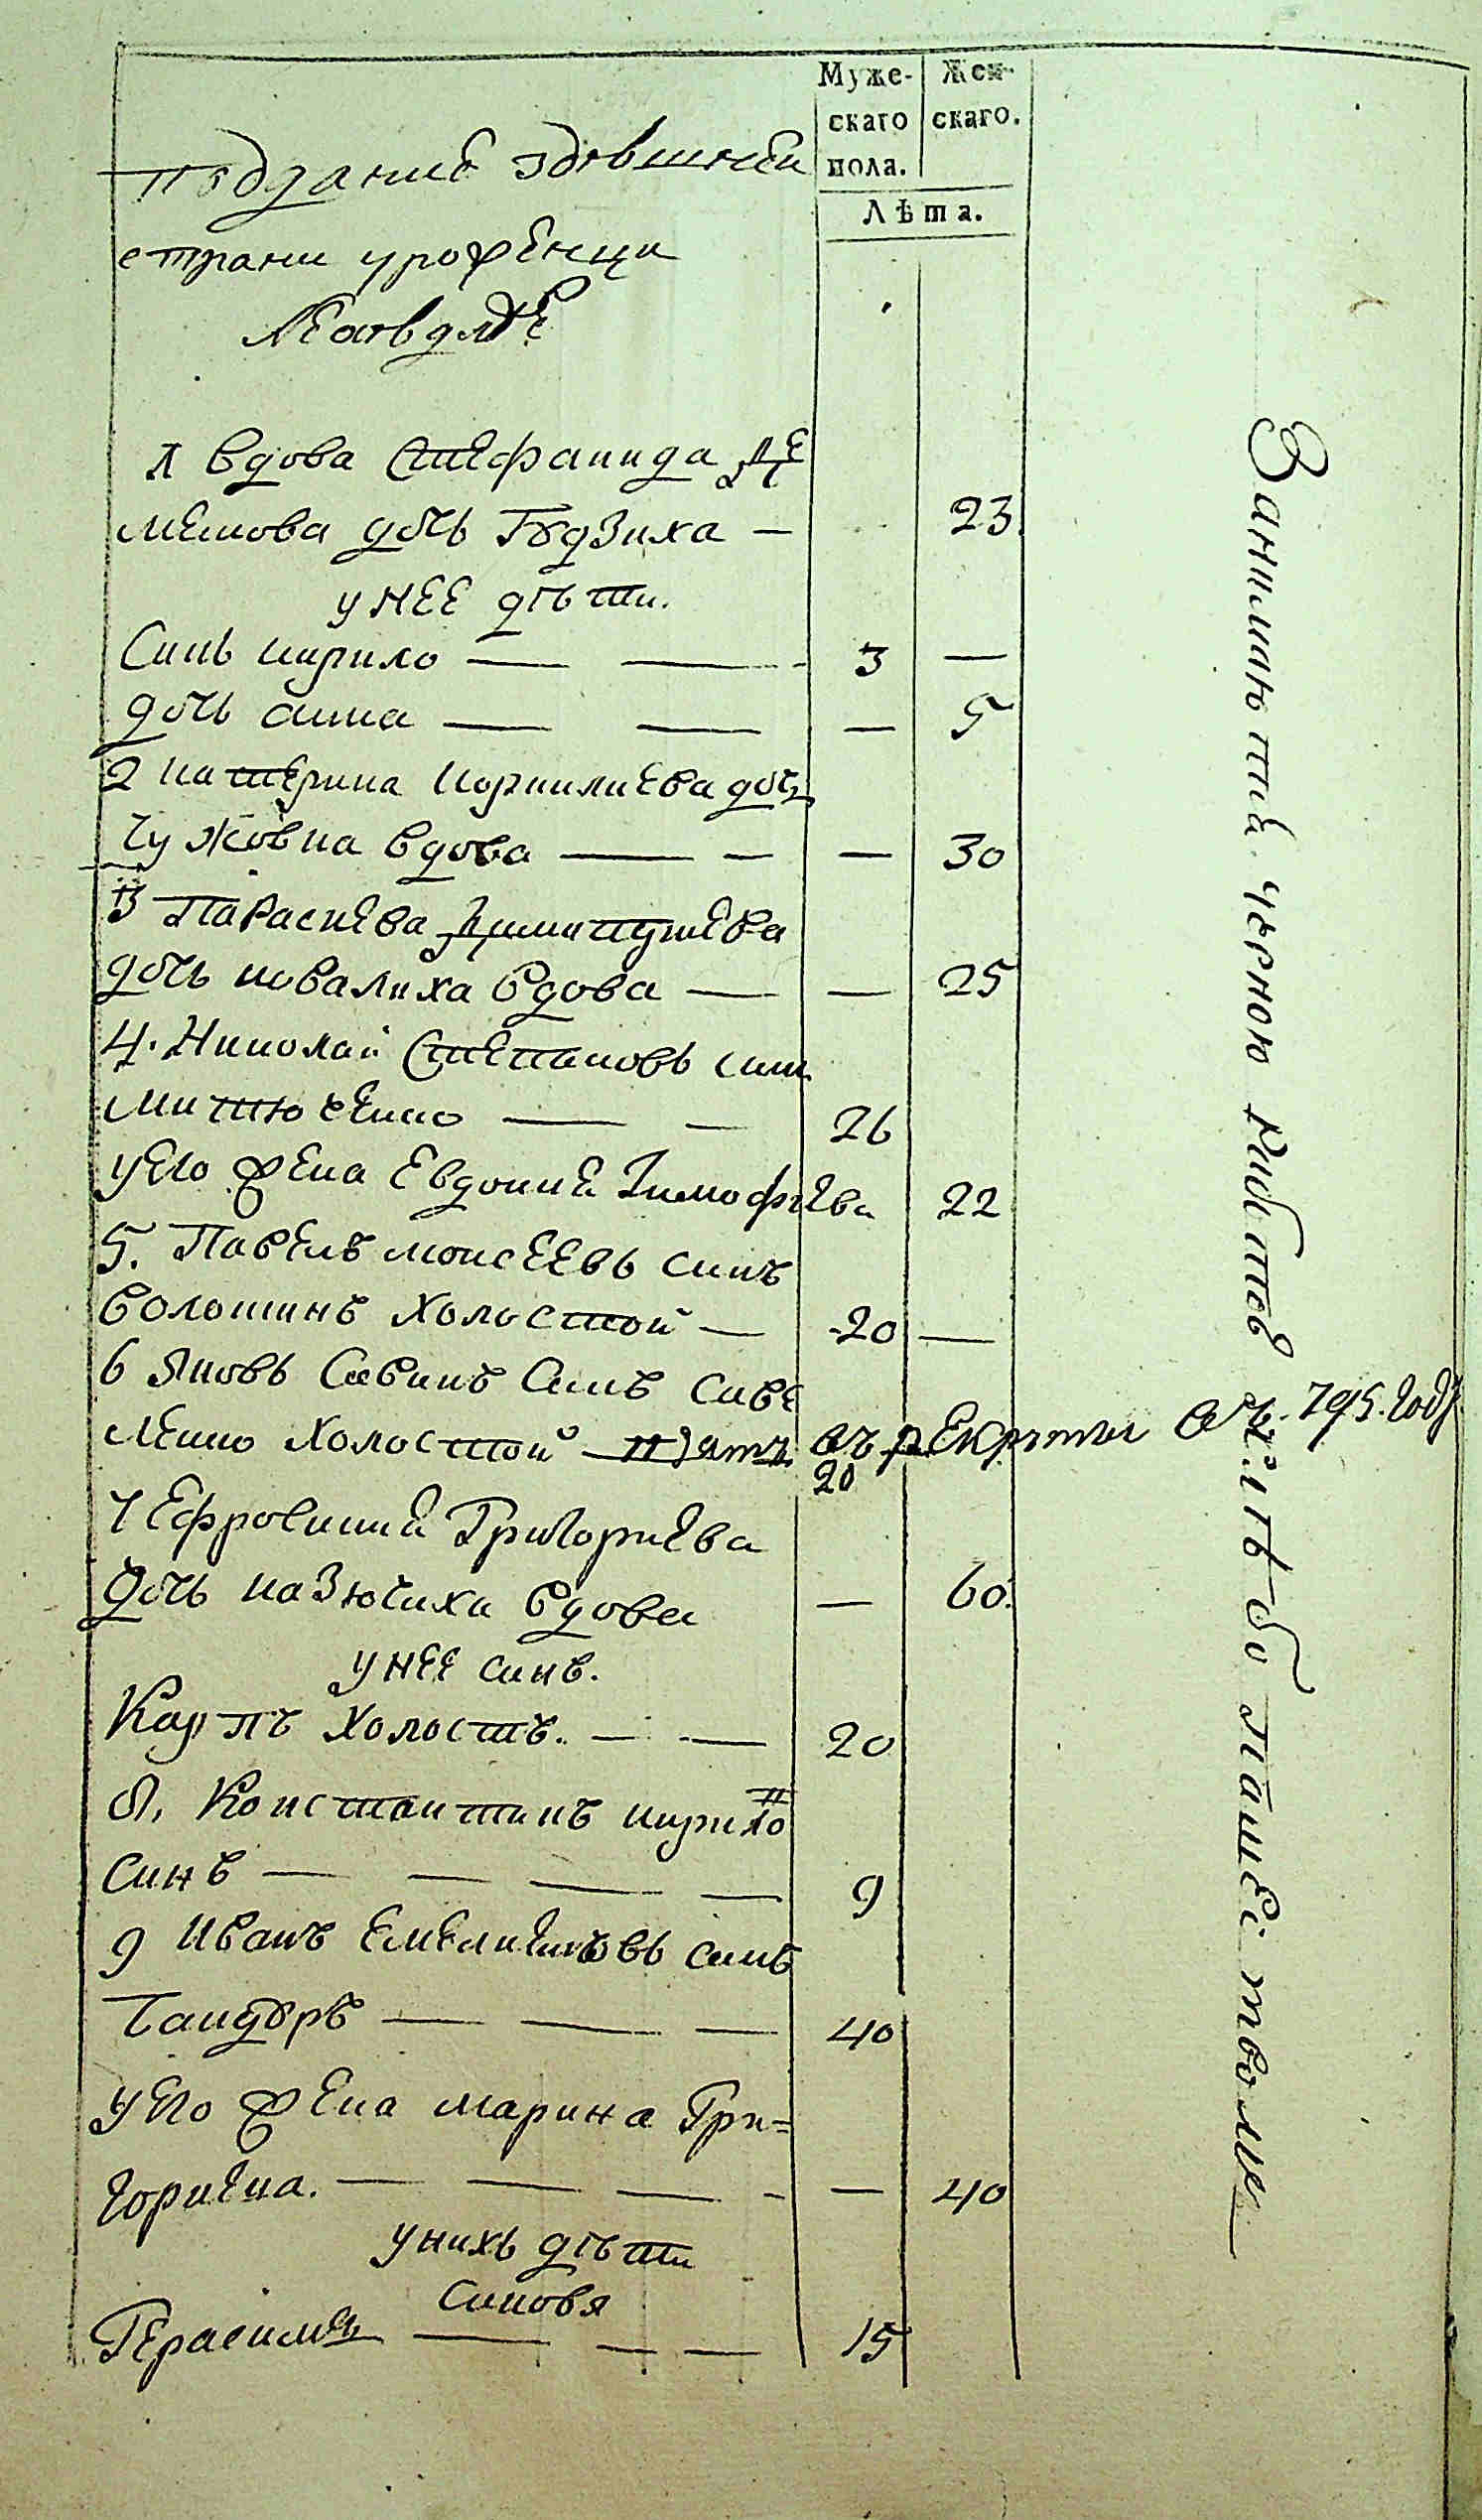 Муже-
скаго
пола.
Жен-
скаго.
Лѣта.
поддание здешней
страни уроженци
1 Вдова Стефанида Де
мешова дочь Гудзиха — 23
у нее дѣти.
Синъ кирило — — 3 —
дочь анна — — — 5
2 катерина корнилиева дочь
Чужовна вдова — — — 30
3 Параскева Димитриева
дочь ковалиха вдова — — 25
4. Николай Степановъ синъ
митюченко — — 26
у его жена Евдокия Тимофиева 22
5. Павелъ моисеевъ синъ
волошинъ холостой — 20 —
6 Яковъ Савинъ Синъ Саве
ленко холостой взятъ въ рекруты въ 795. году
20
7 Ефросиния Григориева
дочь казючиха вдова — 60.
у нее синъ.
Карпъ холостъ. — — 20
8. Константинъ кирило
синъ — — — — 9
9 Иванъ Емелияновъ синъ
Бандуръ — — — 40
у его жена марина Гри=
гориева. — — — - — 40
у нихъ дѣти
Синовя
Герасимъ — — — 15
Занимаютця черною работою и хлѣбопашеством